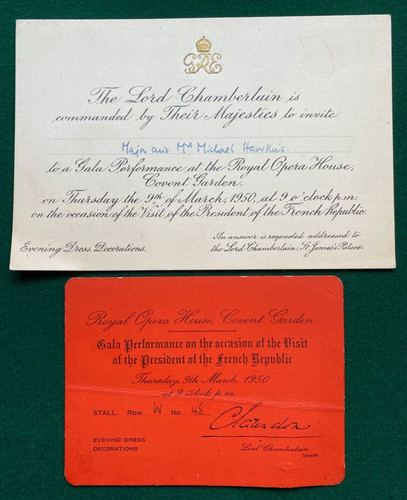 GRE
The Lord Chamberlain is
commanded by Their Majesties to invite
Major and Mrs Michael Hawkins
to a Gala Performance at the Royal Opera House,
Covent Garden,
on Thursday the 9th of March, 1950, at 9 o'clock p.m.
on the occasion of the Visit of the President of the French Republic.
Evening Dress, Decorations.
An answer is requested addressed to
the Lord Chamberlain, St. James's Palace.
Royal Opera House, Covent Garden
Gala Performance on the occasion of the Visit
of the President of the French Republic
Thursday, 9th March, 1950
at 9 o'clock p.m.
STALL. Row W No. 48
Clarendon
EVENING DRESS
DECORATIONS
Lord Chamberlain